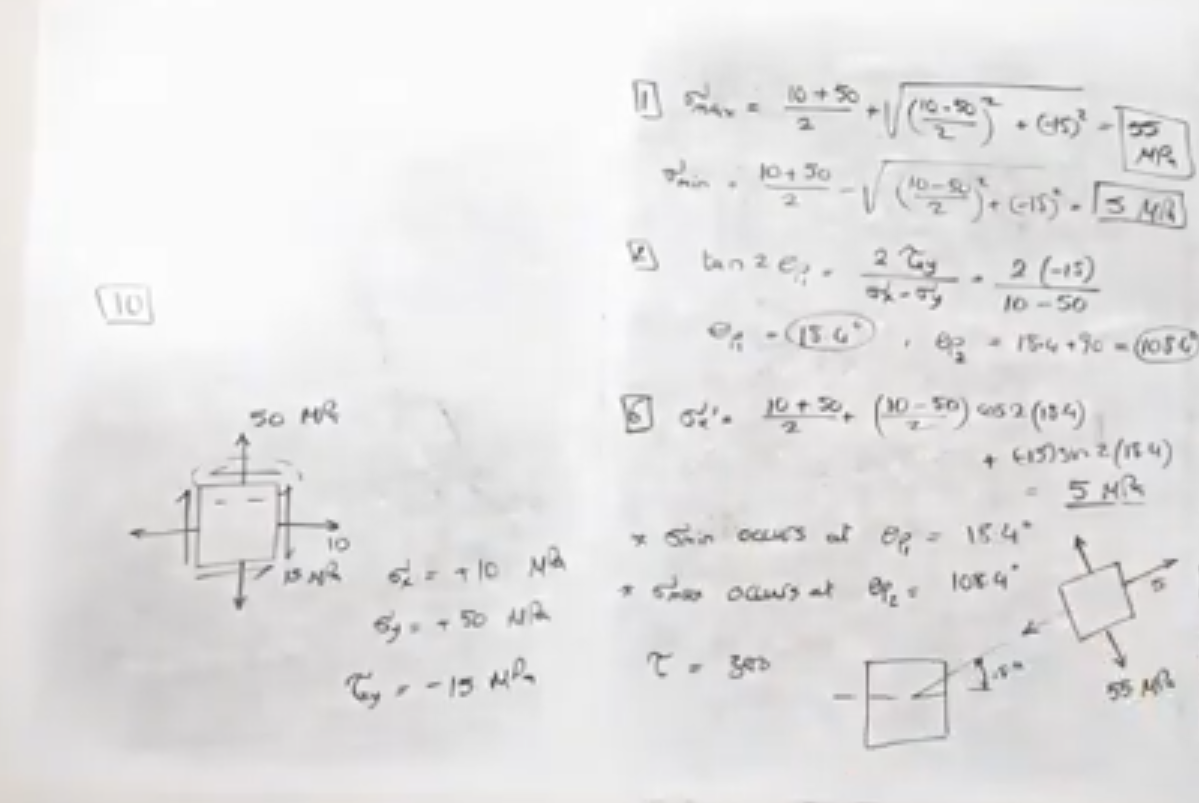 10
50 MPa
10
15 MPa
σx = +10 MPa
σy = +50 MPa
τxy = -15 MPa
1 σmax = (10+50)/2 + √(((10-50)/2)² + (-15)²) = 55 MPa
σmin = (10+50)/2 - √(((10-50)/2)² + (-15)²) = 5 MPa
tan 2θp₁ = 2τxy/(σx-σy) = 2(-15)/(10-50)
θp₁ = 18.4°, θp₂ = 18.4+90 = 108.4°
σx' = (10+50)/2 + ((10-50)/2) cos 2(18.4)
+ (-15) sin 2(18.4)
= 5 MPa
* σmin occurs at θp₁ = 18.4°
* σmax occurs at θp₂ = 108.4°
5
τ = zero
55 MPa